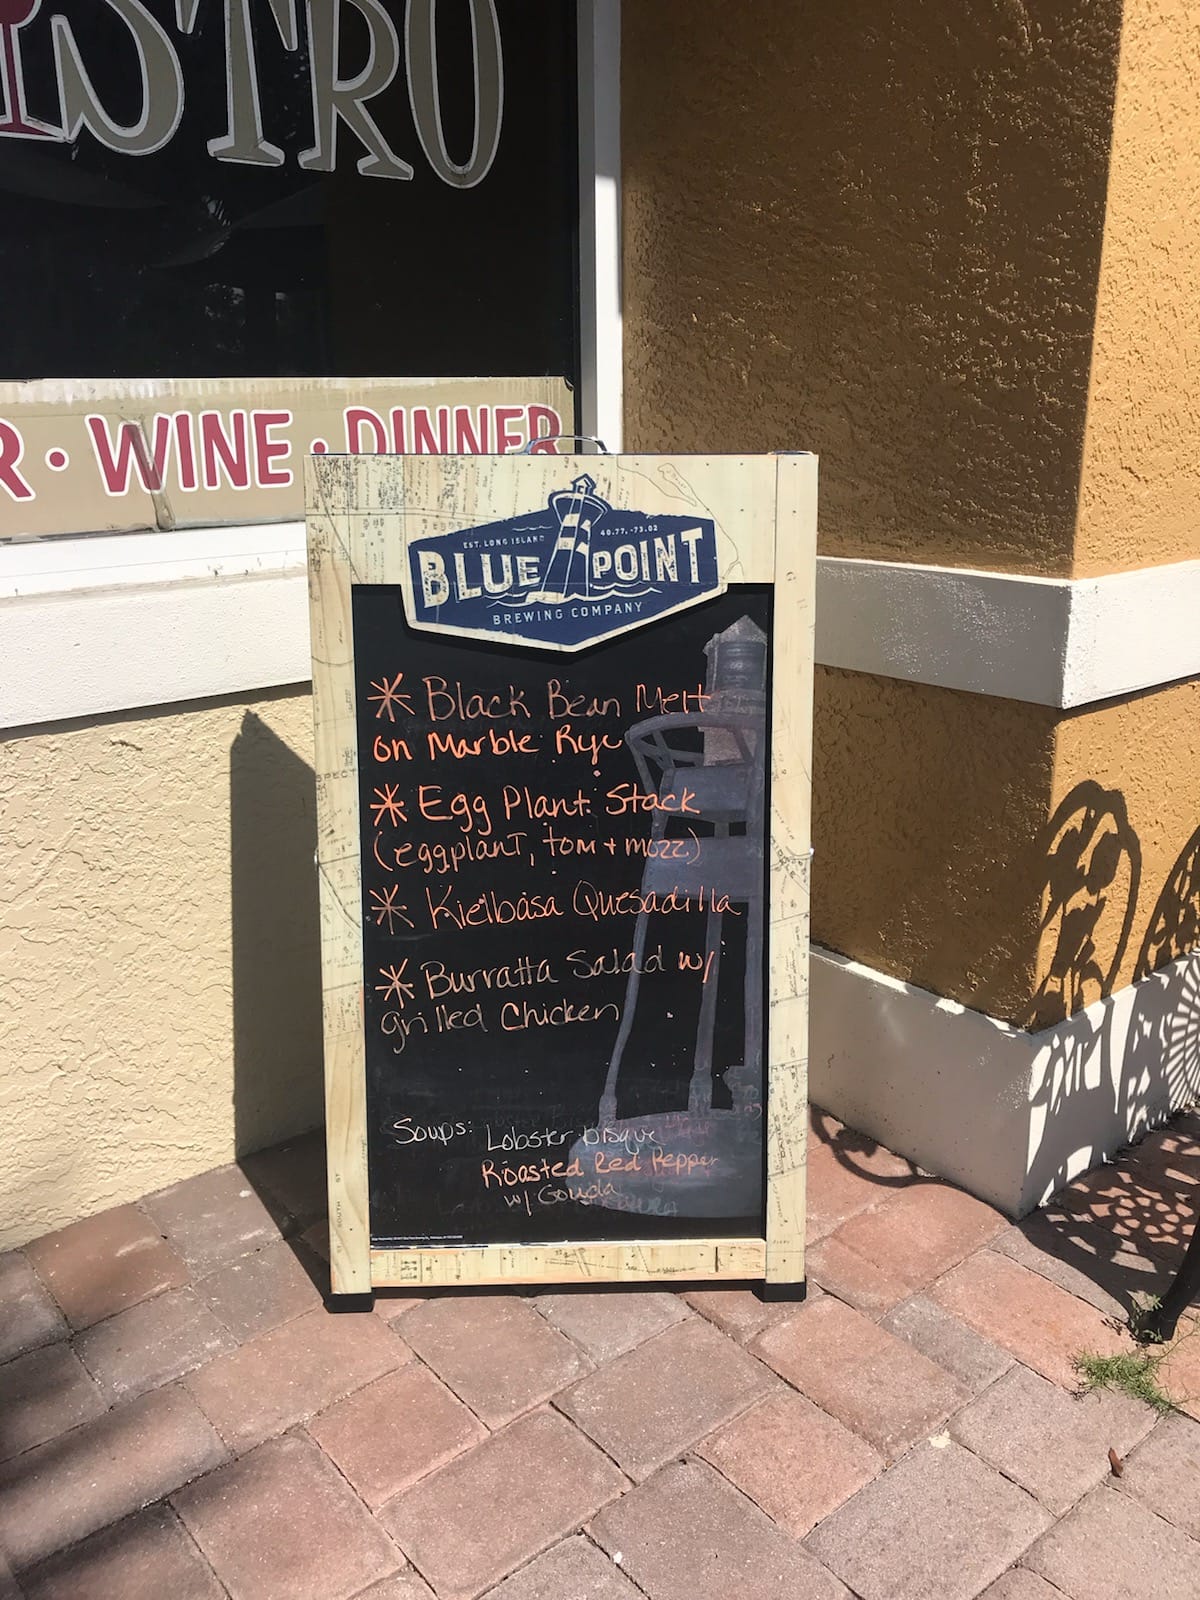 ISTRO
R · WINE · DINNER
EST. LONG ISLAND
40.77. -73.02
BLUE POINT
BREWING COMPANY
* Black Bean Melt
on Marble Rye
* Egg Plant Stack
(eggplant, tom + mozz.)
* Kielbasa Quesadilla
* Burratta Salad w/
grilled Chicken
Soups: Lobster bisque
Roasted Red Pepper
w/ Gouda